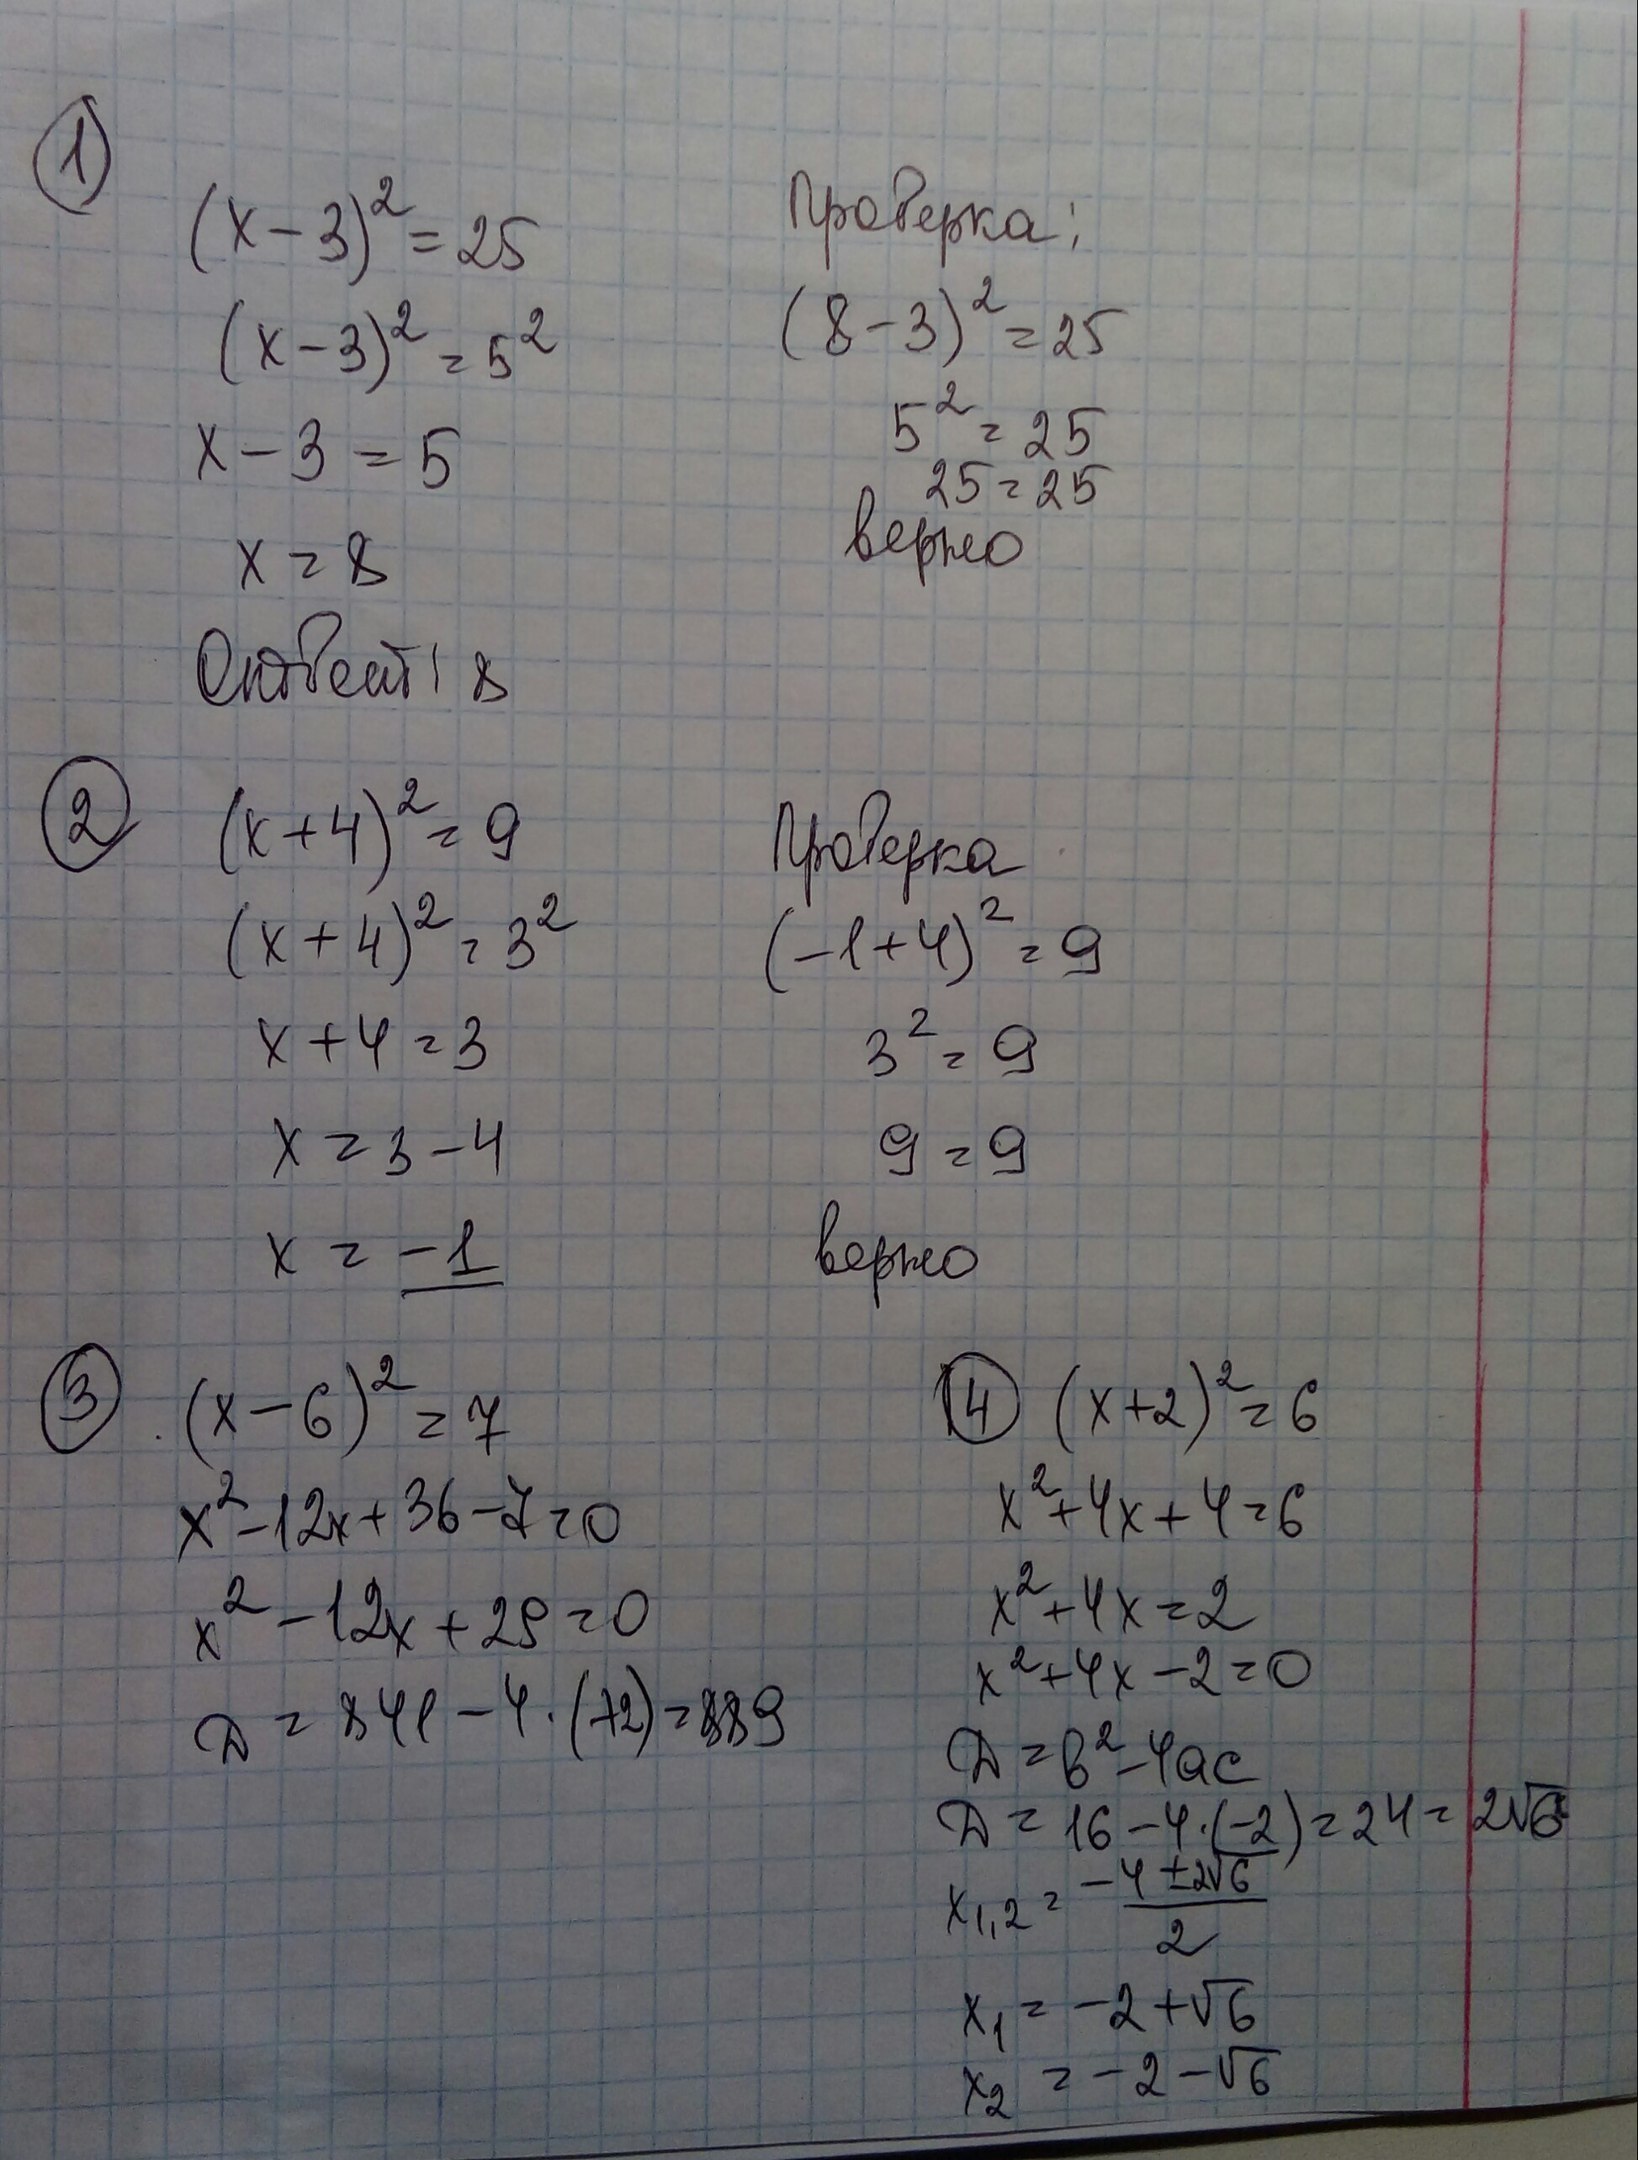 1
(x-3)²=25
(x-3)²=5²
x-3=5
x=8
Ответ: 8
Проверка:
(8-3)²=25
5²=25
25=25
верно
2
(x+4)²=9
(x+4)²=3²
x+4=3
x=3-4
x=-1
Проверка
(-1+4)²=9
3²=9
9=9
верно
3
(x-6)²=7
x²-12x+36-7=0
x²-12x+29=0
Д=841-4·(12)=889
4
(x+2)²=6
x²+4x+4=6
x²+4x=2
x²+4x-2=0
Д=b²-4ac
Д=16-4·(-2)=24=2√6
x1,2=(-4±2√6)/2
x1=-2+√6
x2=-2-√6